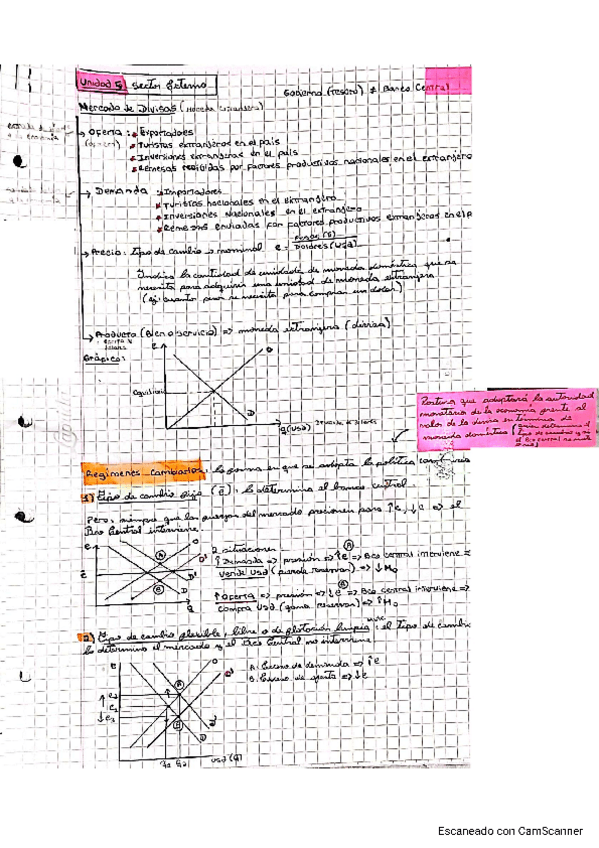 Unidad 5 Sector Externo
Gobierno (Tesoro) ≠ Banco Central
Mercado de Divisas (moneda extranjera)
→ Oferta: Exportadores
Turistas extranjeros en el país
Inversiones extranjeras en el país
Remesas recibidas por factores productivos nacionales en el extranjero
→ Demanda: Importadores
Turistas nacionales en el extranjero
Inversiones Nacionales en el extranjero
Remesas enviadas por factores productivos extranjeros en el p
→ Precio: tipo de cambio nominal e = Pesos ($) / Dólares (USD)
Indica la cantidad de unidades de moneda doméstica que se
necesita para adquirir una unidad de moneda extranjera
(ej: cuantos pesos se necesita para comprar un dolar)
→ Producto (Bien o servicio) ⇒ moneda extranjera (divisa)
Gráfico:
e
O
Equilibrio
D
Q (USD)
Postura que adoptará la autoridad
monetaria de la economía frente al
valor de la divisa en término de
moneda doméstica
Regímenes Cambiarios: la forma en que se adopta la política cambiaria
1) Tipo de cambio fijo (ē): lo determina el banco central.
Pero, siempre que las fuerzas del mercado presionen para ↑e, ↓e ⇒ el
Bco Central interviene.
2 situaciones
A
↑ Demanda ⇒ presión ⇒ ↑e ⇒ Bco central interviene ⇒
vende USD (pierde reservas) ⇒ ↓M₀
B
↑ Oferta ⇒ presión ⇒ ↓e ⇒ Bco central interviene ⇒
compra USD (gana reservas) ⇒ ↑M₀
e
O
O'
ē
A
B
D'
D
Q
2) Tipo de cambio flexible, libre o de flotación limpia: el tipo de cambio
lo determina el mercado y el Bco Central no interviene.
A: Exceso de demanda ⇒ ↑e
B: Exceso de oferta ⇒ ↓e
e
O
O'
A
D'
D
USD (Q)
Escaneado con CamScanner